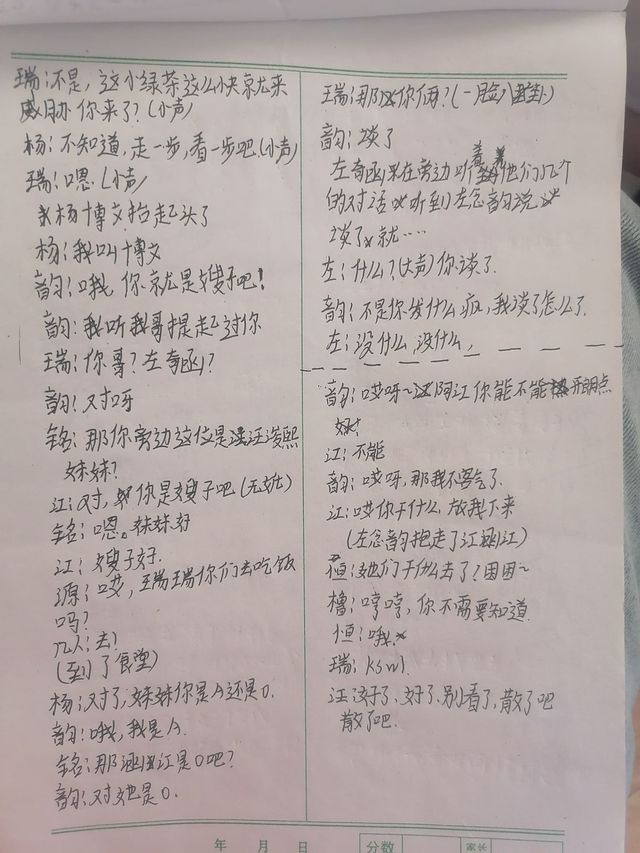 瑞:不是,这小绿茶这么快就来
威胁你来了?(小声)
杨:不知道,走一步,看一步吧.(小声)
瑞:嗯.(小声)
杨博文抬起头了
杨:我叫博文
韵:哦,你就是嫂子吧!
韵:我听我哥提起过你
瑞:你哥?左奇函?
韵:对呀
铭:那你旁边这位是汪浚熙
妹妹?
江:对,你是嫂子吧(无如)
铭:嗯。妹妹好
江:嫂子好.
源:哎,瑞瑞你们去吃饭
吗?
几人:去!
(到了食堂)
杨:对了,妹妹你是A还是O.
韵:哦,我是A.
铭:那涵江是O吧?
韵:对她是O.
瑞:那你俩?(一脸八卦)
韵:谈了
左奇函在旁边听着他们几个
的对话 听到左念韵说
谈了就……
左:什么?(大声)你谈了.
韵:不是你发什么疯,我谈了怎么了.
左:没什么,没什么,
韵:哎呀~阿江你能不能开朗点
江:不能
韵:哎呀,那我不客气了.
江:哎你干什么,放我下来
(左念韵抱走了江涵江)
恒:她们干什么去了?困困~
橹:哼哼,你不需要知道.
恒:哦.
瑞:kswl.
江:好了,好了,别看了,散了吧
散了吧.
年 月 日 分数 家长